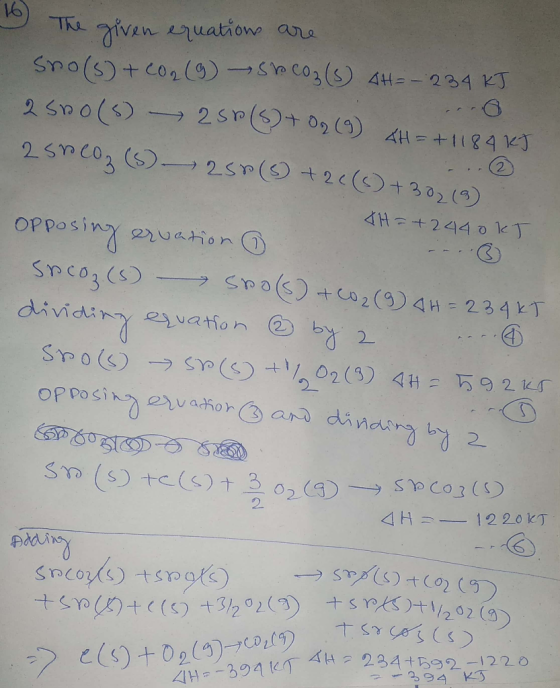 16 The given equations are
SrO(s) + CO2(g) → SrCO3(s) ΔH = - 234 KJ
.... ①
2 SrO(s) → 2 Sr(s) + O2(g) ΔH = +1184 KJ
.... ②
2 SrCO3(s) → 2Sr(s) + 2C(s) + 3O2(g)
ΔH = +2440 KJ
.... ③
Opposing equation ①
SrCO3(s) → SrO(s) + CO2(g) ΔH = 234 KJ
.... ④
dividing equation ② by 2
SrO(s) → Sr(s) + 1/2 O2(g) ΔH = 592 KJ
.... ⑤
Opposing equation ③ and dividing by 2
Sr(s) + C(s) + 3/2 O2(g) → SrCO3(s)
ΔH = - 1220 KJ
.... ⑥
Adding
SrCO3(s) + SrO(s) → SrO(s) + CO2(g)
+ Sr(s) + C(s) + 3/2 O2(g) + Sr(s) + 1/2 O2(g)
+ SrCO3(s)
⇒ C(s) + O2(g) → CO2(g)
ΔH = -394 KJ ΔH = 234 + 592 - 1220
= -394 KJ